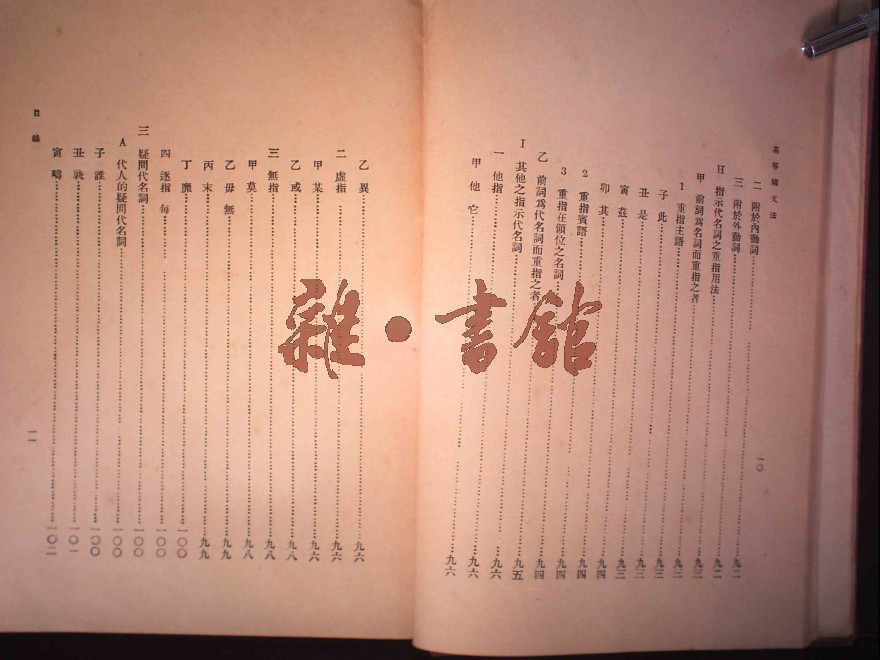 高等國文法
二 附於內動詞……九二
三 附於外動詞……九二
H 指示代名詞之重指用法……九二
甲 前詞爲名詞而重指之者……九二
1 重指主語……九二
子 此……九三
丑 是……九三
寅 茲……九三
卯 其……九四
2 重指賓語……九四
3 重指在領位之名詞……九四
乙 前詞爲代名詞而重指之者……九四
I 其他之指示代名詞……九五
一 他指……九六
甲 他 它……九六
一〇
乙 異……九六
二 虛指……九六
甲 某……九六
乙 或……九八
三 無指……九八
甲 莫……九八
乙 毋 無……九九
丙 末……九九
丁 靡……一〇〇
四 逐指 每……一〇〇
三 疑問代名詞……一〇〇
A 代人的疑問代名詞……一〇〇
子 誰……一〇〇
丑 孰……一〇一
寅 疇……一〇二
目錄
一一
雜·書館